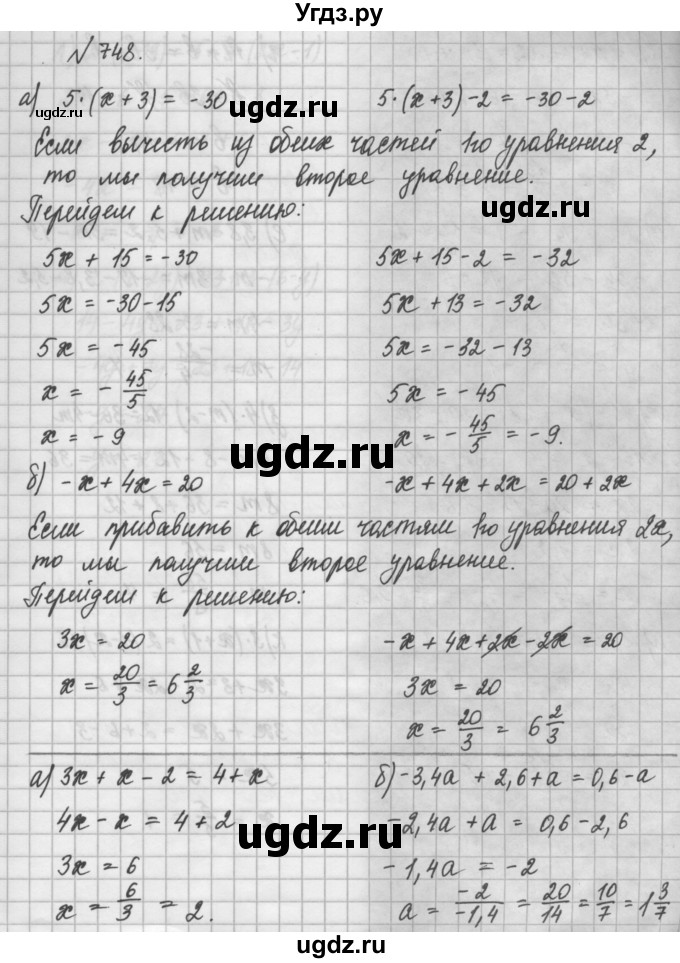 Угдз.ру
№748.
а) 5·(x+3) = -30    5·(x+3)-2 = -30-2
Если вычесть из обеих частей 1го уравнения 2,
то мы получим второе уравнение.
Перейдем к решению:
5x + 15 = -30    5x + 15 - 2 = -32
5x = -30-15    5x + 13 = -32
5x = -45    5x = -32 - 13
x = - 45/5    5x = -45
x = -9    x = - 45/5 = -9.
б) -x + 4x = 20    -x + 4x + 2x = 20 + 2x
Если прибавить к обеим частям 1го уравнения 2x,
то мы получим второе уравнение.
Перейдем к решению:
3x = 20    -x + 4x + 2x - 2x = 20
x = 20/3 = 6 2/3    3x = 20
x = 20/3 = 6 2/3
а) 3x + x - 2 = 4 + x    б) -3,4a + 2,6 + a = 0,6 - a
4x - x = 4 + 2    -2,4a + a = 0,6 - 2,6
3x = 6    -1,4a = -2
x = 6/3 = 2.    a = -2/-1,4 = 20/14 = 10/7 = 1 3/7
ugdz.ru
ugdz.ru
ugdz.ru
ugdz.ru
ugdz.ru
ugdz.ru
ugdz.ru
ugdz.ru
ugdz.ru
ugdz.ru